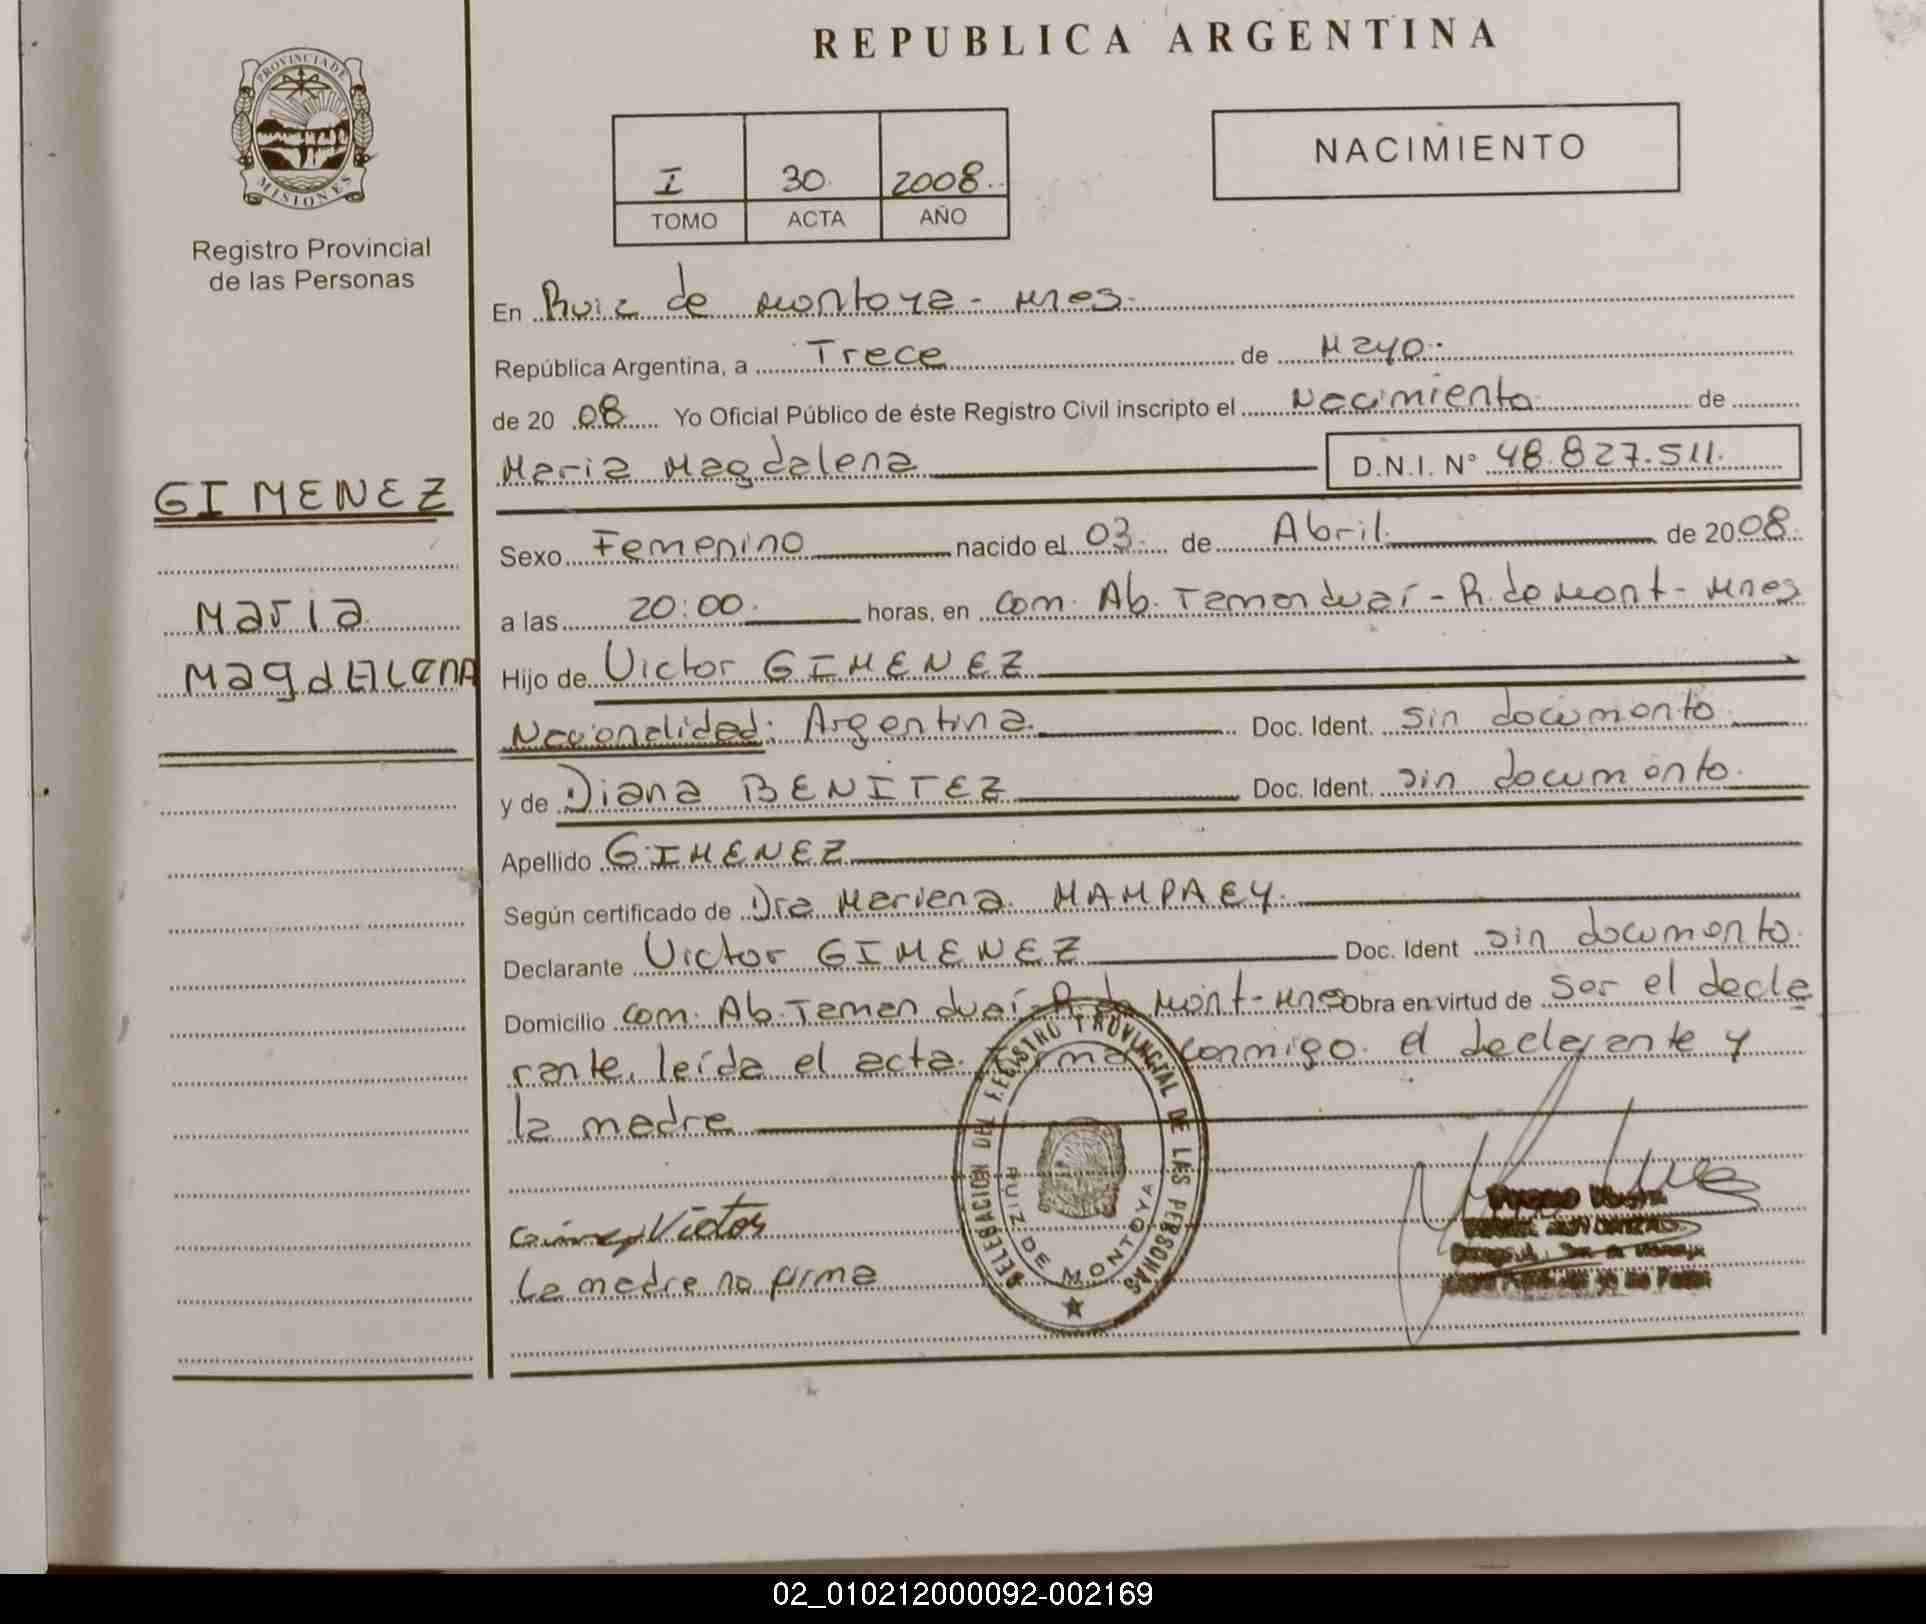 REPUBLICA ARGENTINA
PROVINCIA DE
MISIONES
Registro Provincial
de las Personas
I 30 2008
TOMO ACTA AÑO
NACIMIENTO
GIMENEZ
Maria
MagdALENA
En Ruiz de Montoya - Mnes.
República Argentina, a Trece de Mayo.
de 20 08 Yo Oficial Público de éste Registro Civil inscripto el Nacimiento de
Maria Magdalena D.N.I. N° 48.827.511.
Sexo Femenino nacido el 03 de Abril de 2008.
a las 20:00. horas, en Com. Ab. Tamanduaí - R. de Mont - Mnes
Hijo de Victor GIMENEZ
Nacionalidad: Argentina. Doc. Ident. sin documento
y de Diana BENITEZ Doc. Ident. sin documento.
Apellido GIMENEZ
Según certificado de Dra Mariana MAMPAEY.
Declarante Victor GIMENEZ Doc. Ident sin documento.
Domicilio com. Ab. Tamanduaí - R. de Mont - Mnes Obra en virtud de ser el decla
rante, leída el acta. Firma conmigo el declarante y
la madre
Gimenez Victor
La madre no firma
DELEGACION DEL REGISTRO PROVINCIAL DE LAS PERSONAS
RUIZ DE MONTOYA
02_010212000092-002169